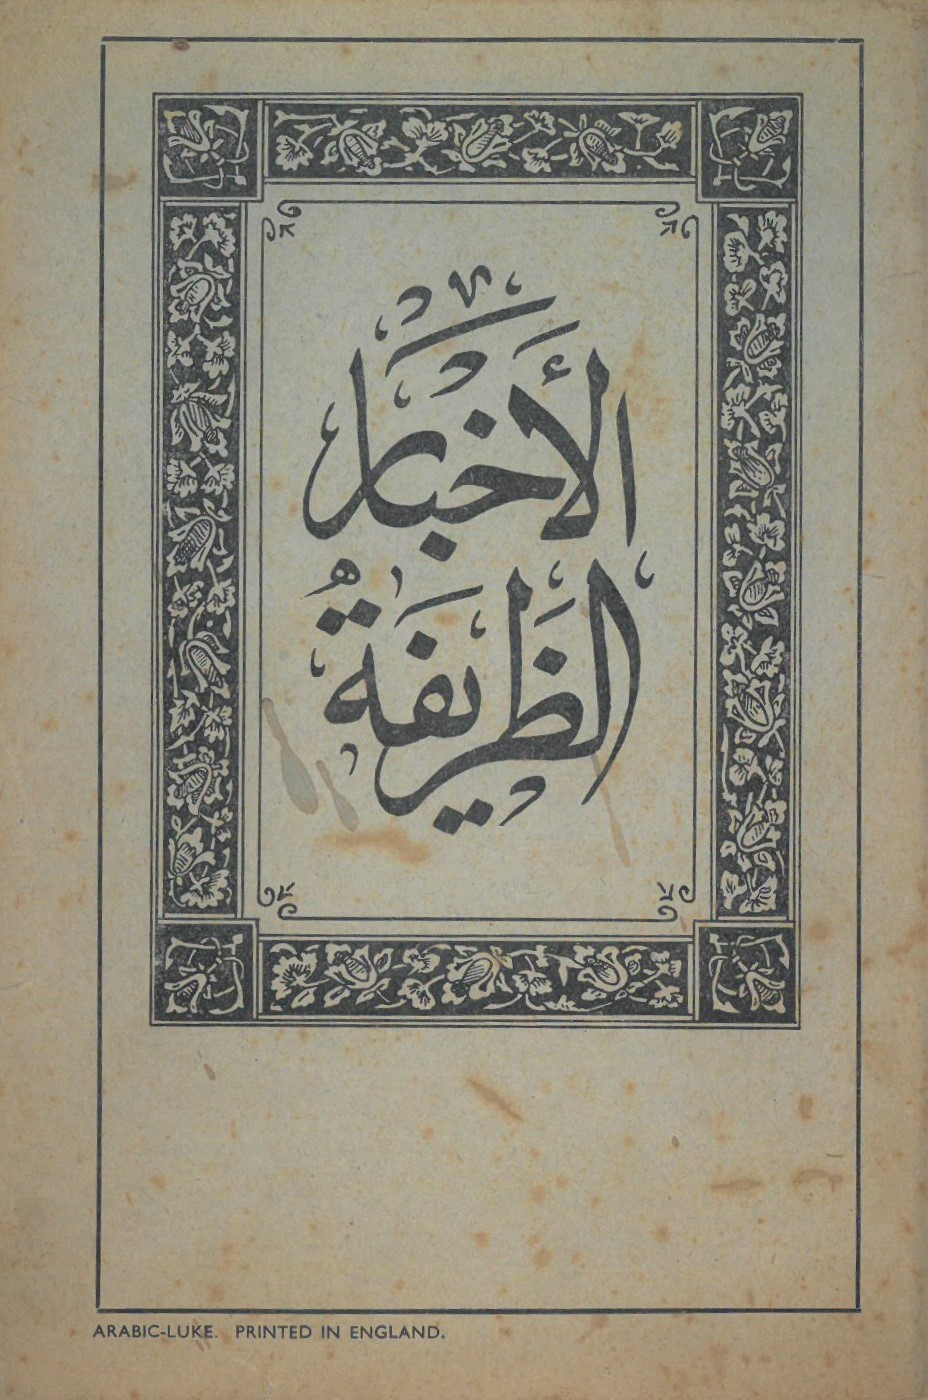 الأخبار
الظريفة
ARABIC-LUKE. PRINTED IN ENGLAND.